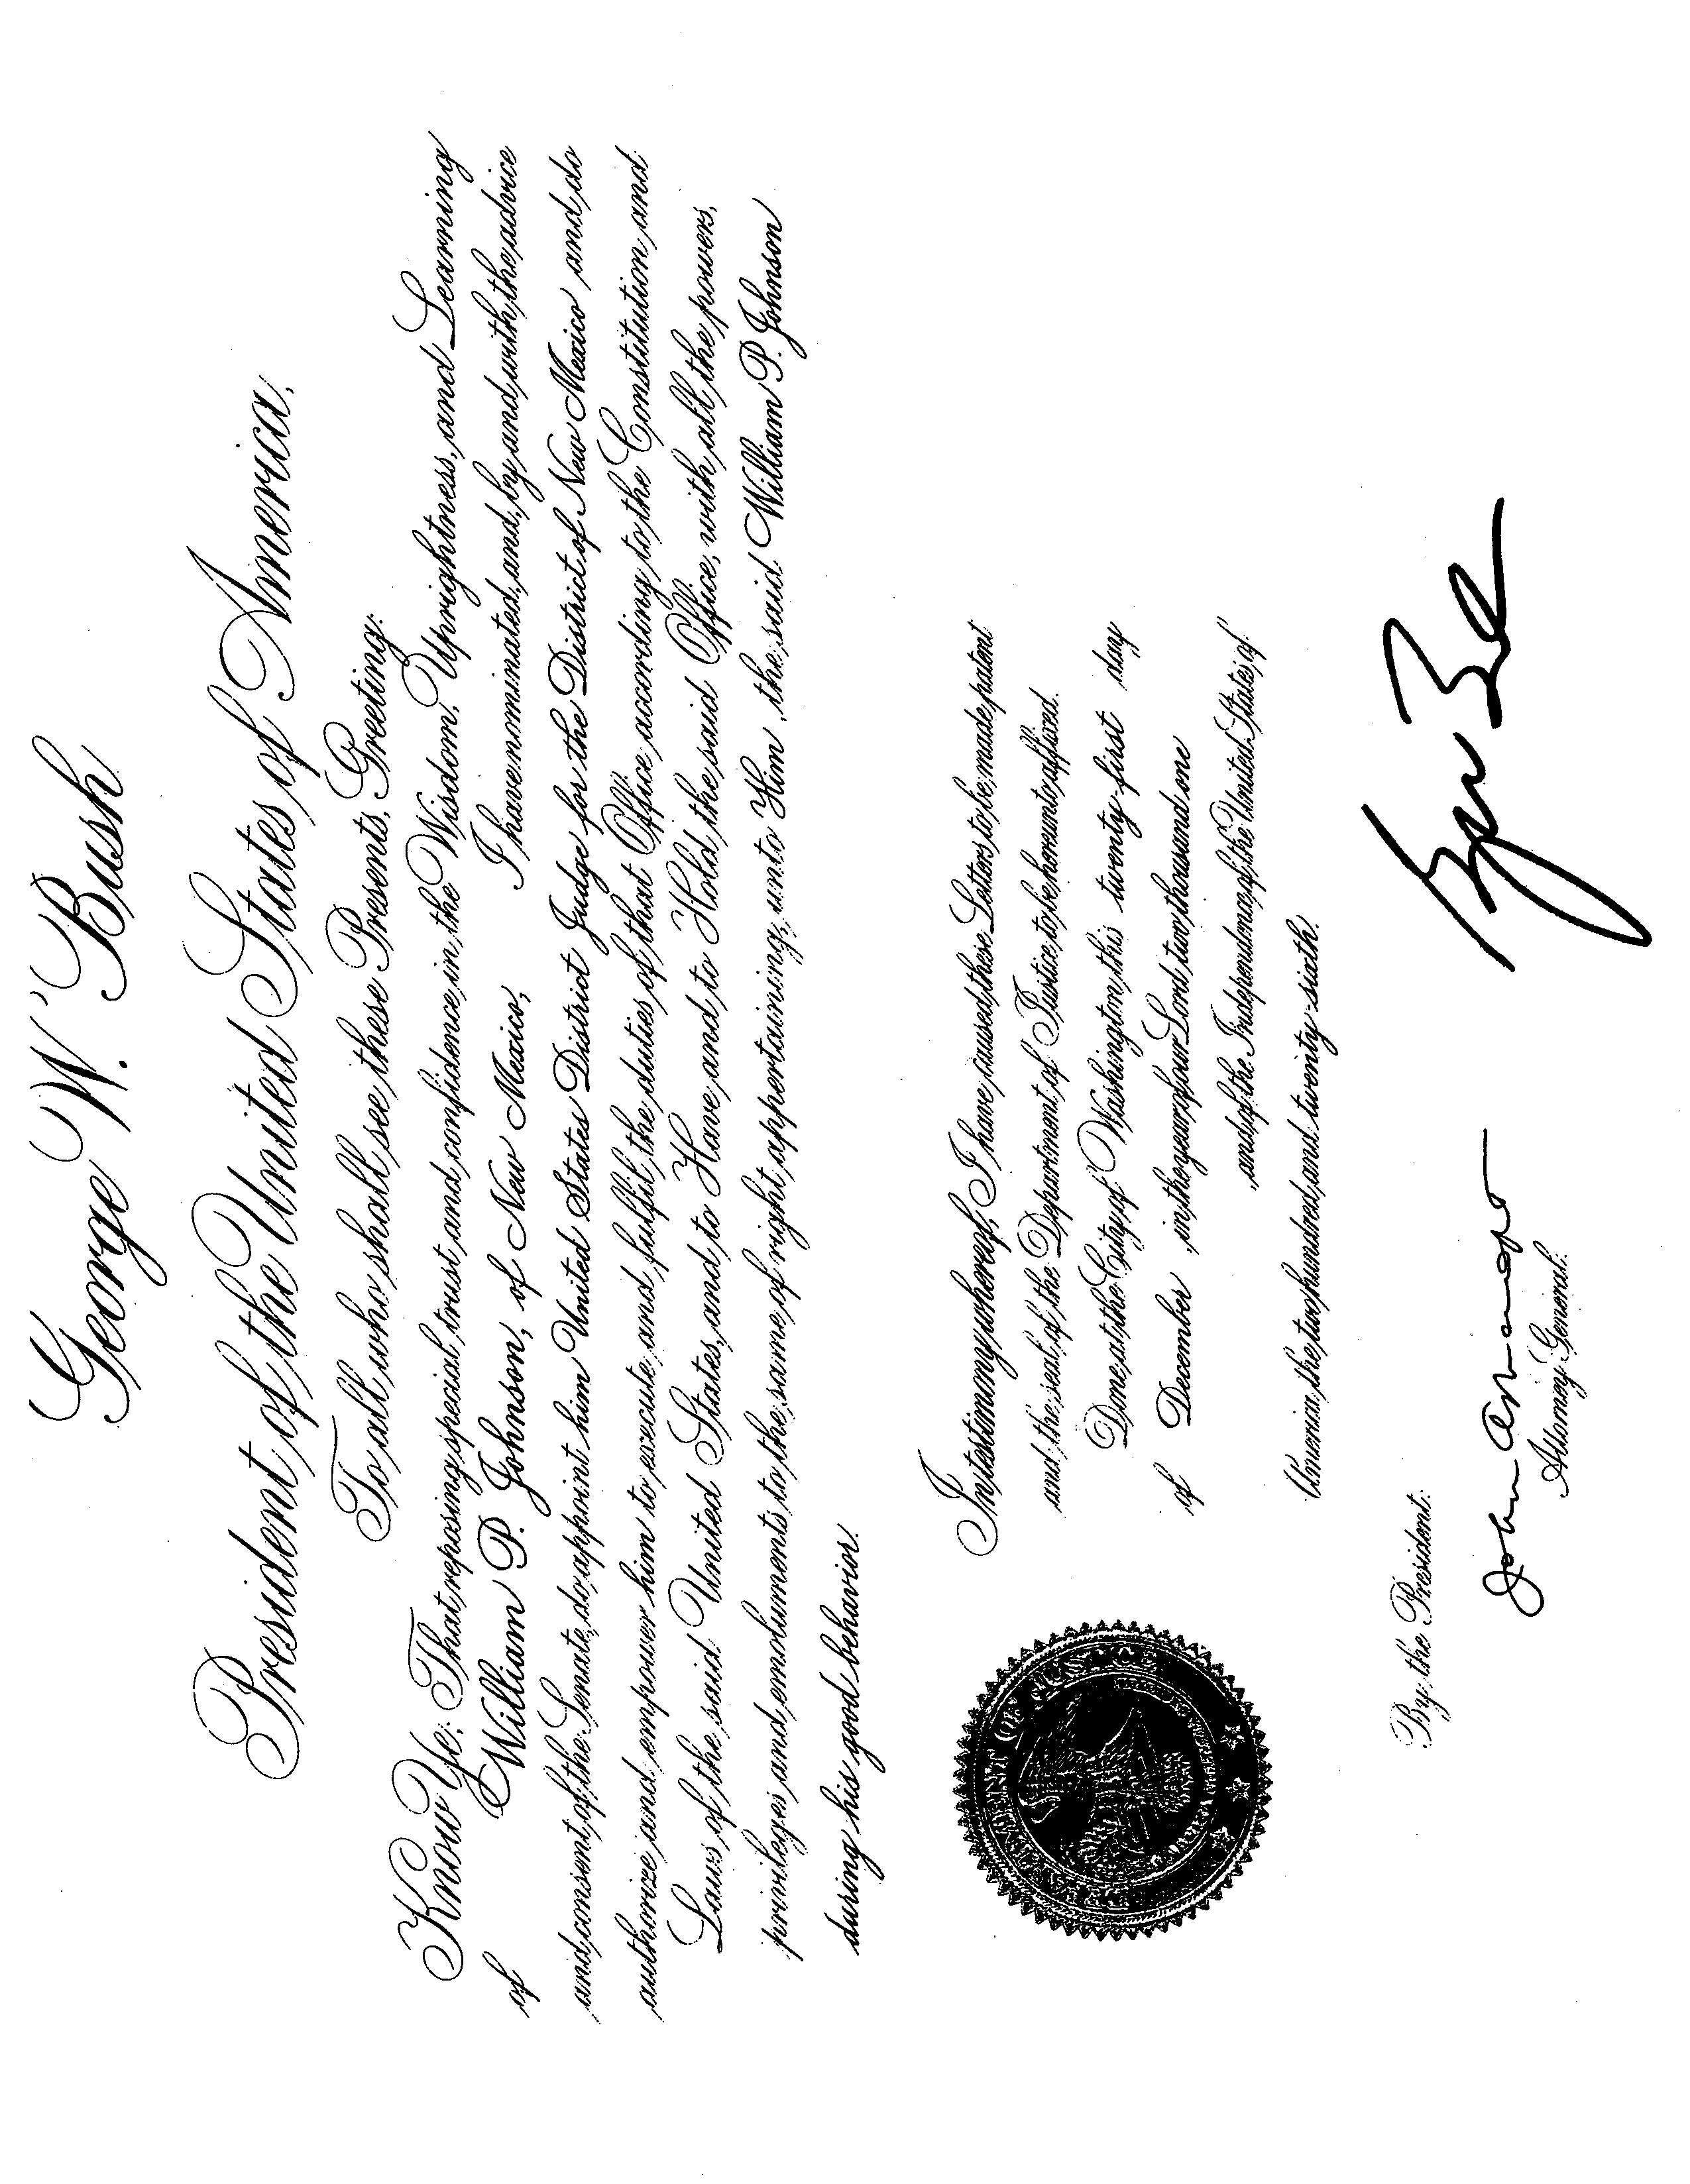 George W. Bush
President of the United States of America,
To all who shall see these Presents, Greeting:
Know Ye; That, reposing special trust and confidence in the Wisdom, Uprightness, and Learning
of William P. Johnson, of New Mexico, I have nominated, and, by and with the advice
and consent of the Senate, do appoint him United States District Judge for the District of New Mexico and do
authorize and empower him to execute and fulfil the duties of that Office according to the Constitution and
Laws of the said United States, and to Have and to Hold the said Office, with all the powers,
privileges and emoluments to the same of right appertaining, unto Him, the said William P. Johnson
during his good behavior.
In testimony whereof, I have caused these Letters to be made patent
and the seal of the Department of Justice to be hereunto affixed.
Done at the City of Washington, this twenty-first day
of December, in the year of our Lord two thousand one
, and of the Independence of the United States of
America the two hundred and twenty-sixth.
By the President:
John Ashcroft
Attorney General.